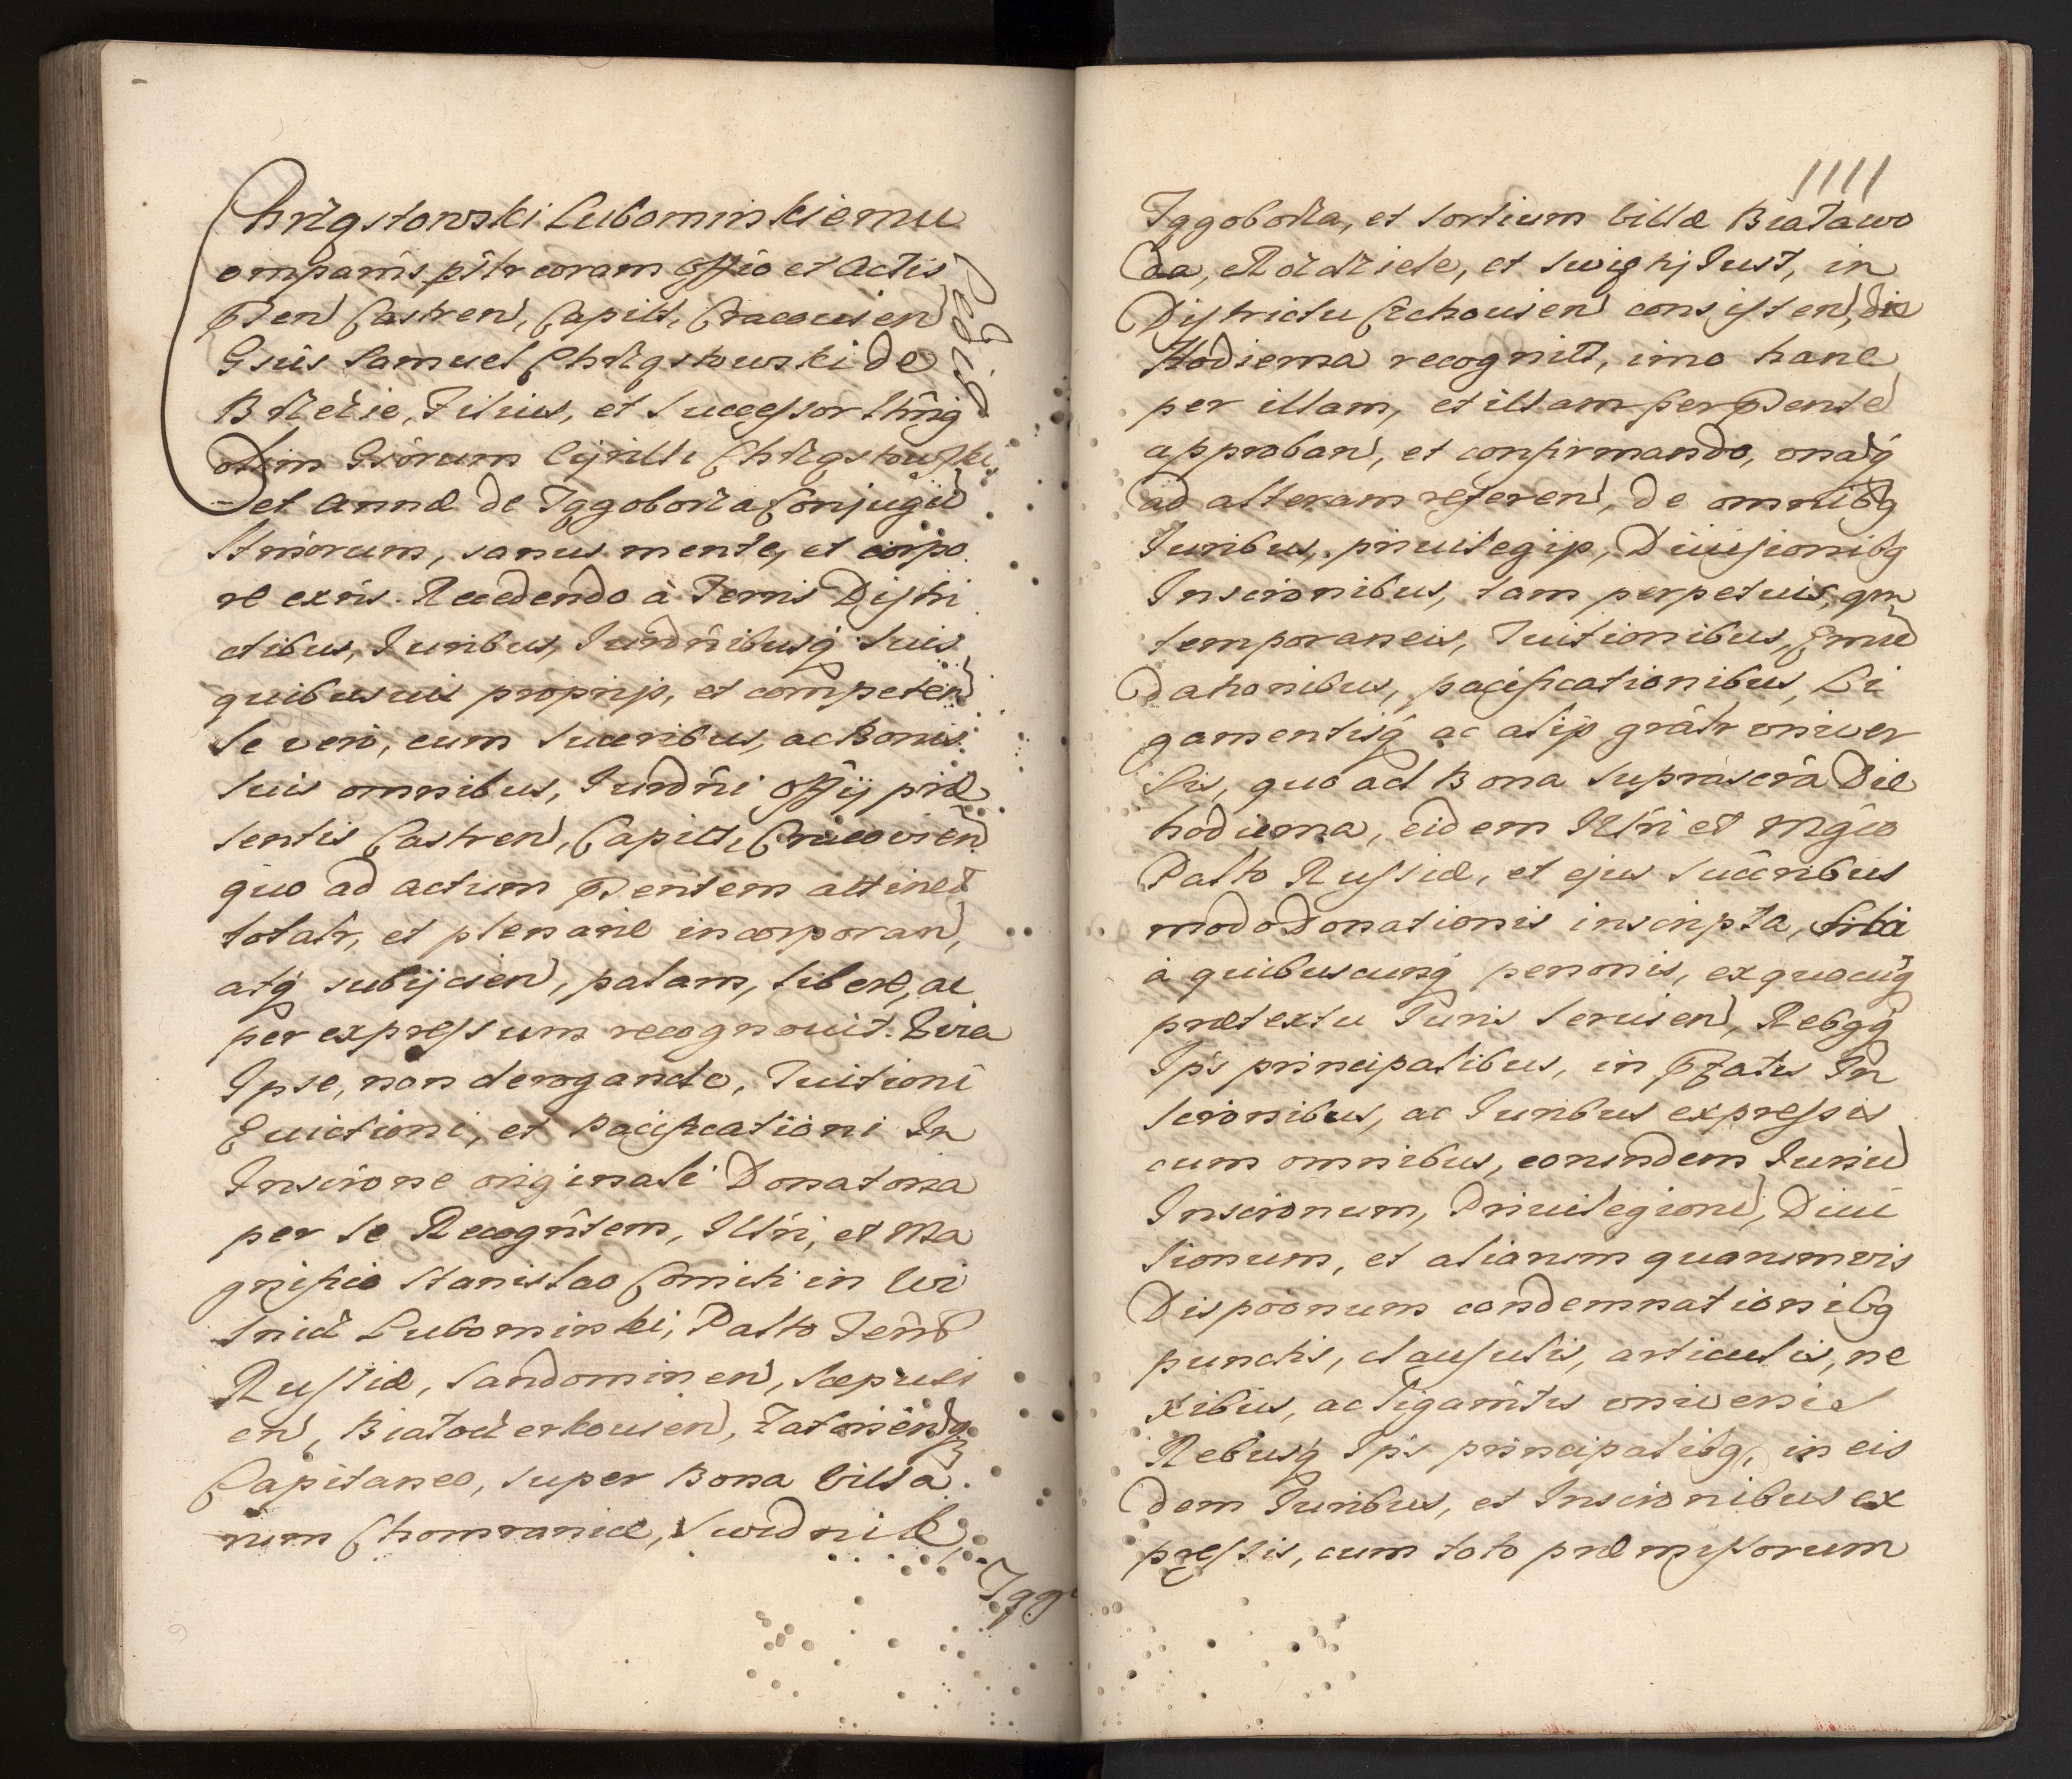 Chrząstowski Lubomirskiemu
Comparens psltr coram Offio et Actis
Pnten Castren, Capitt, Cracouien
Gsus Samuel Chrząstowski de
Brzezie, Filius, et Successor
olim Gsorum Cyrilli Chrząstowski
et Annæ de Zggoborza Conjugū
, sanus mente, et corpo
re exns. Recedendo à Terris Distri
ctibus, Juribus, Jurdnibusq suis
quibusuis proprijs, et competen
se vero, cum succribus, ac Bonis
suis omnibus, Jurdni Offij præ
sentis Castren, Capitt, Cracovien
quo ad actum Pntem attinet
totalr, et plenarie incorporan,
atq subijcien, palam, libere, ac
per expressum recognouit. Quia
Ipse, non derogando, Tuitioni
Euictioni, et Pacificationi In
Inscrone originali Donatoria
per se Recogntem, Illri, et Ma
gnifico Stanislao Comiti in Wi
snicz Lubomirski, Palto Terrar
Russiæ, Sandomirien, Scepusi
en, Białocerkouien, Zatorienq
Capitaneo, super Bona Villa
rum Chomranice, Swidnik,
Zggo
1111
Zggoborza, et sortium villæ Białawo
da, Rozdziele, et Swighy Just, in
Districtu Czchouien consisten, die
Hodierna recognitt, imo hanc
per illam, et illam per Pntem
approban, et confirmando, onaq
ad alteram referen, de omnibq
Juribus, priuilegijs, Diuisionibq
Inscronibus, tam perpetuis, qm
temporaneis, Tuitionibus, Emū
dationibus, pacificationibus, Li
gamentisq ac alijs gralr univer
sis, quo ad Bona suprascra Die
hodierna, eidem Illri et Mgco
Palto Russiæ, et ejus succribus
modo Donationis inscripta, sibi
à quibuscunq personis, ex quocūq
prætextu Juris seruien, Rebqq
Ips principalibus, in Pfatis In
scronibus, ac Juribus expressis
cum omnibus, eorundem Juriū
Inscronum, Priuilegiorū, Diui
sionum, et aliarum quarumvis
Dispoonum condemnationibq
punctis, clausulis, articulis, ne
xibus, ac ligamtis universis
Rebusq Ips principalibq, in eis
dem Juribus, et Inscronibus ex
pressis, cum toto præmissorum